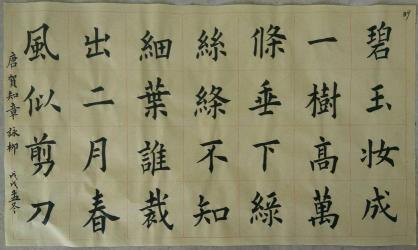 碧玉妆成
一樹高萬
條垂下綠
絲絛不知
細葉誰裁
出二月春
風似剪刀
唐賀知章詠柳 戊戌孟冬